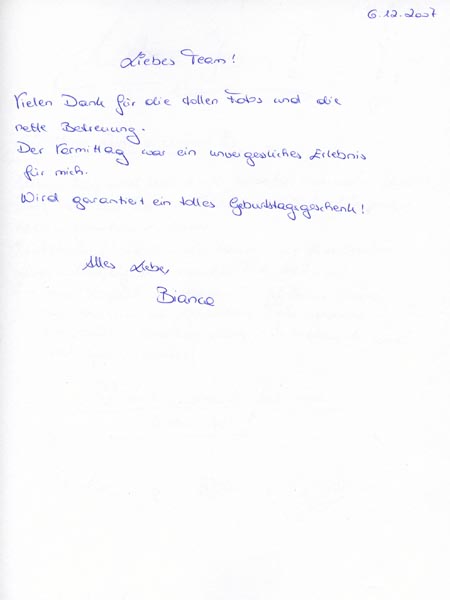 6.12.2007
Liebes Team!
Vielen Dank für die tollen Fotos und die
nette Betreuung.
Der Vormittag war ein unvergessliches Erlebnis
für mich.
Wird garantiert ein tolles Geburtstagsgeschenk!
Alles Liebe,
Bianca